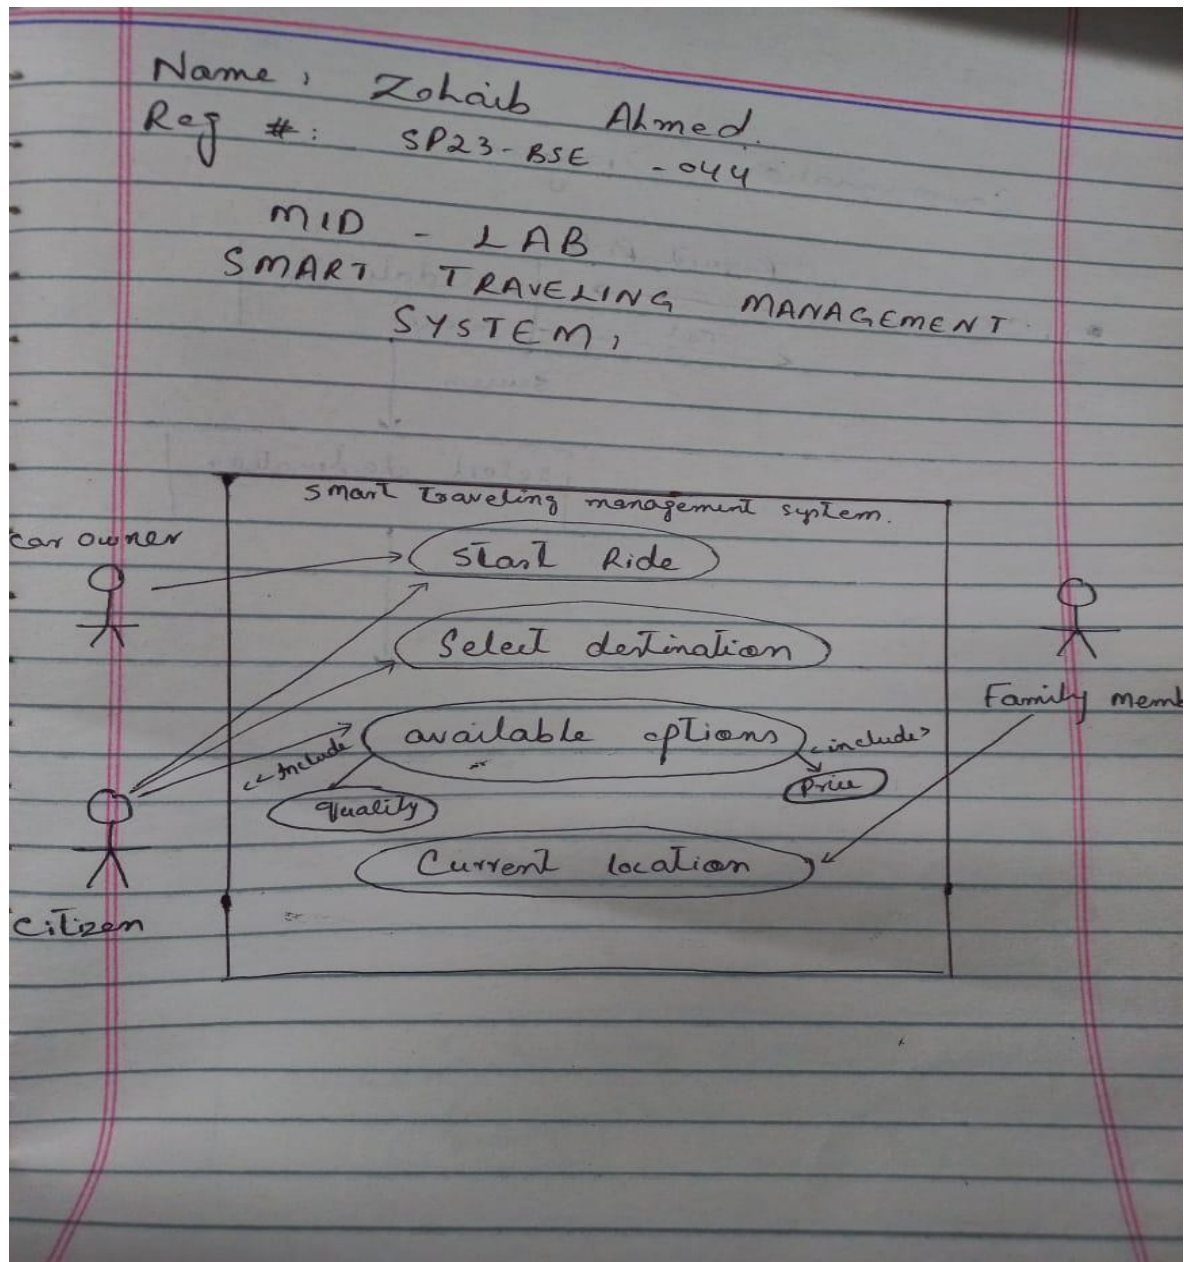 Name : Zohaib Ahmed.
Reg #: SP23-BSE -044
MID - LAB
SMART TRAVELING MANAGEMENT
SYSTEM,
Smart Traveling management system.
car owner
Start Ride
Select destination
Family memb
available options
<< Include
<include>
Price
Quality
Current location
Citizen